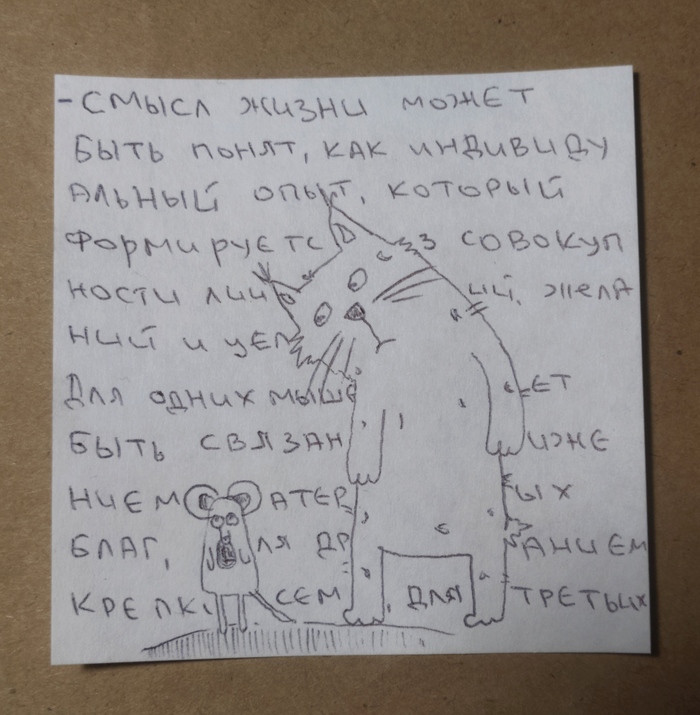 - СМЫСЛ ЖИЗНИ МОЖЕТ
БЫТЬ ПОНЯТ, КАК ИНДИВИДУ
АЛЬНЫЙ ОПЫТ, КОТОРЫЙ
ФОРМИРУЕТС З СОВОКУП
НОСТИ ЛИЧ ИЙ, ЖЕЛА
НИЙ И ЦЕЛ
ДЛЯ ОДНИХ МЫШЕ ЕТ
БЫТЬ СВЯЗАН ИЖЕ
НИЕМ МАТЕР ЫХ
БЛАГ, ЛЯ ДР АНИЕМ
КРЕПК СЕМ , ДЛЯ ТРЕТЬИХ